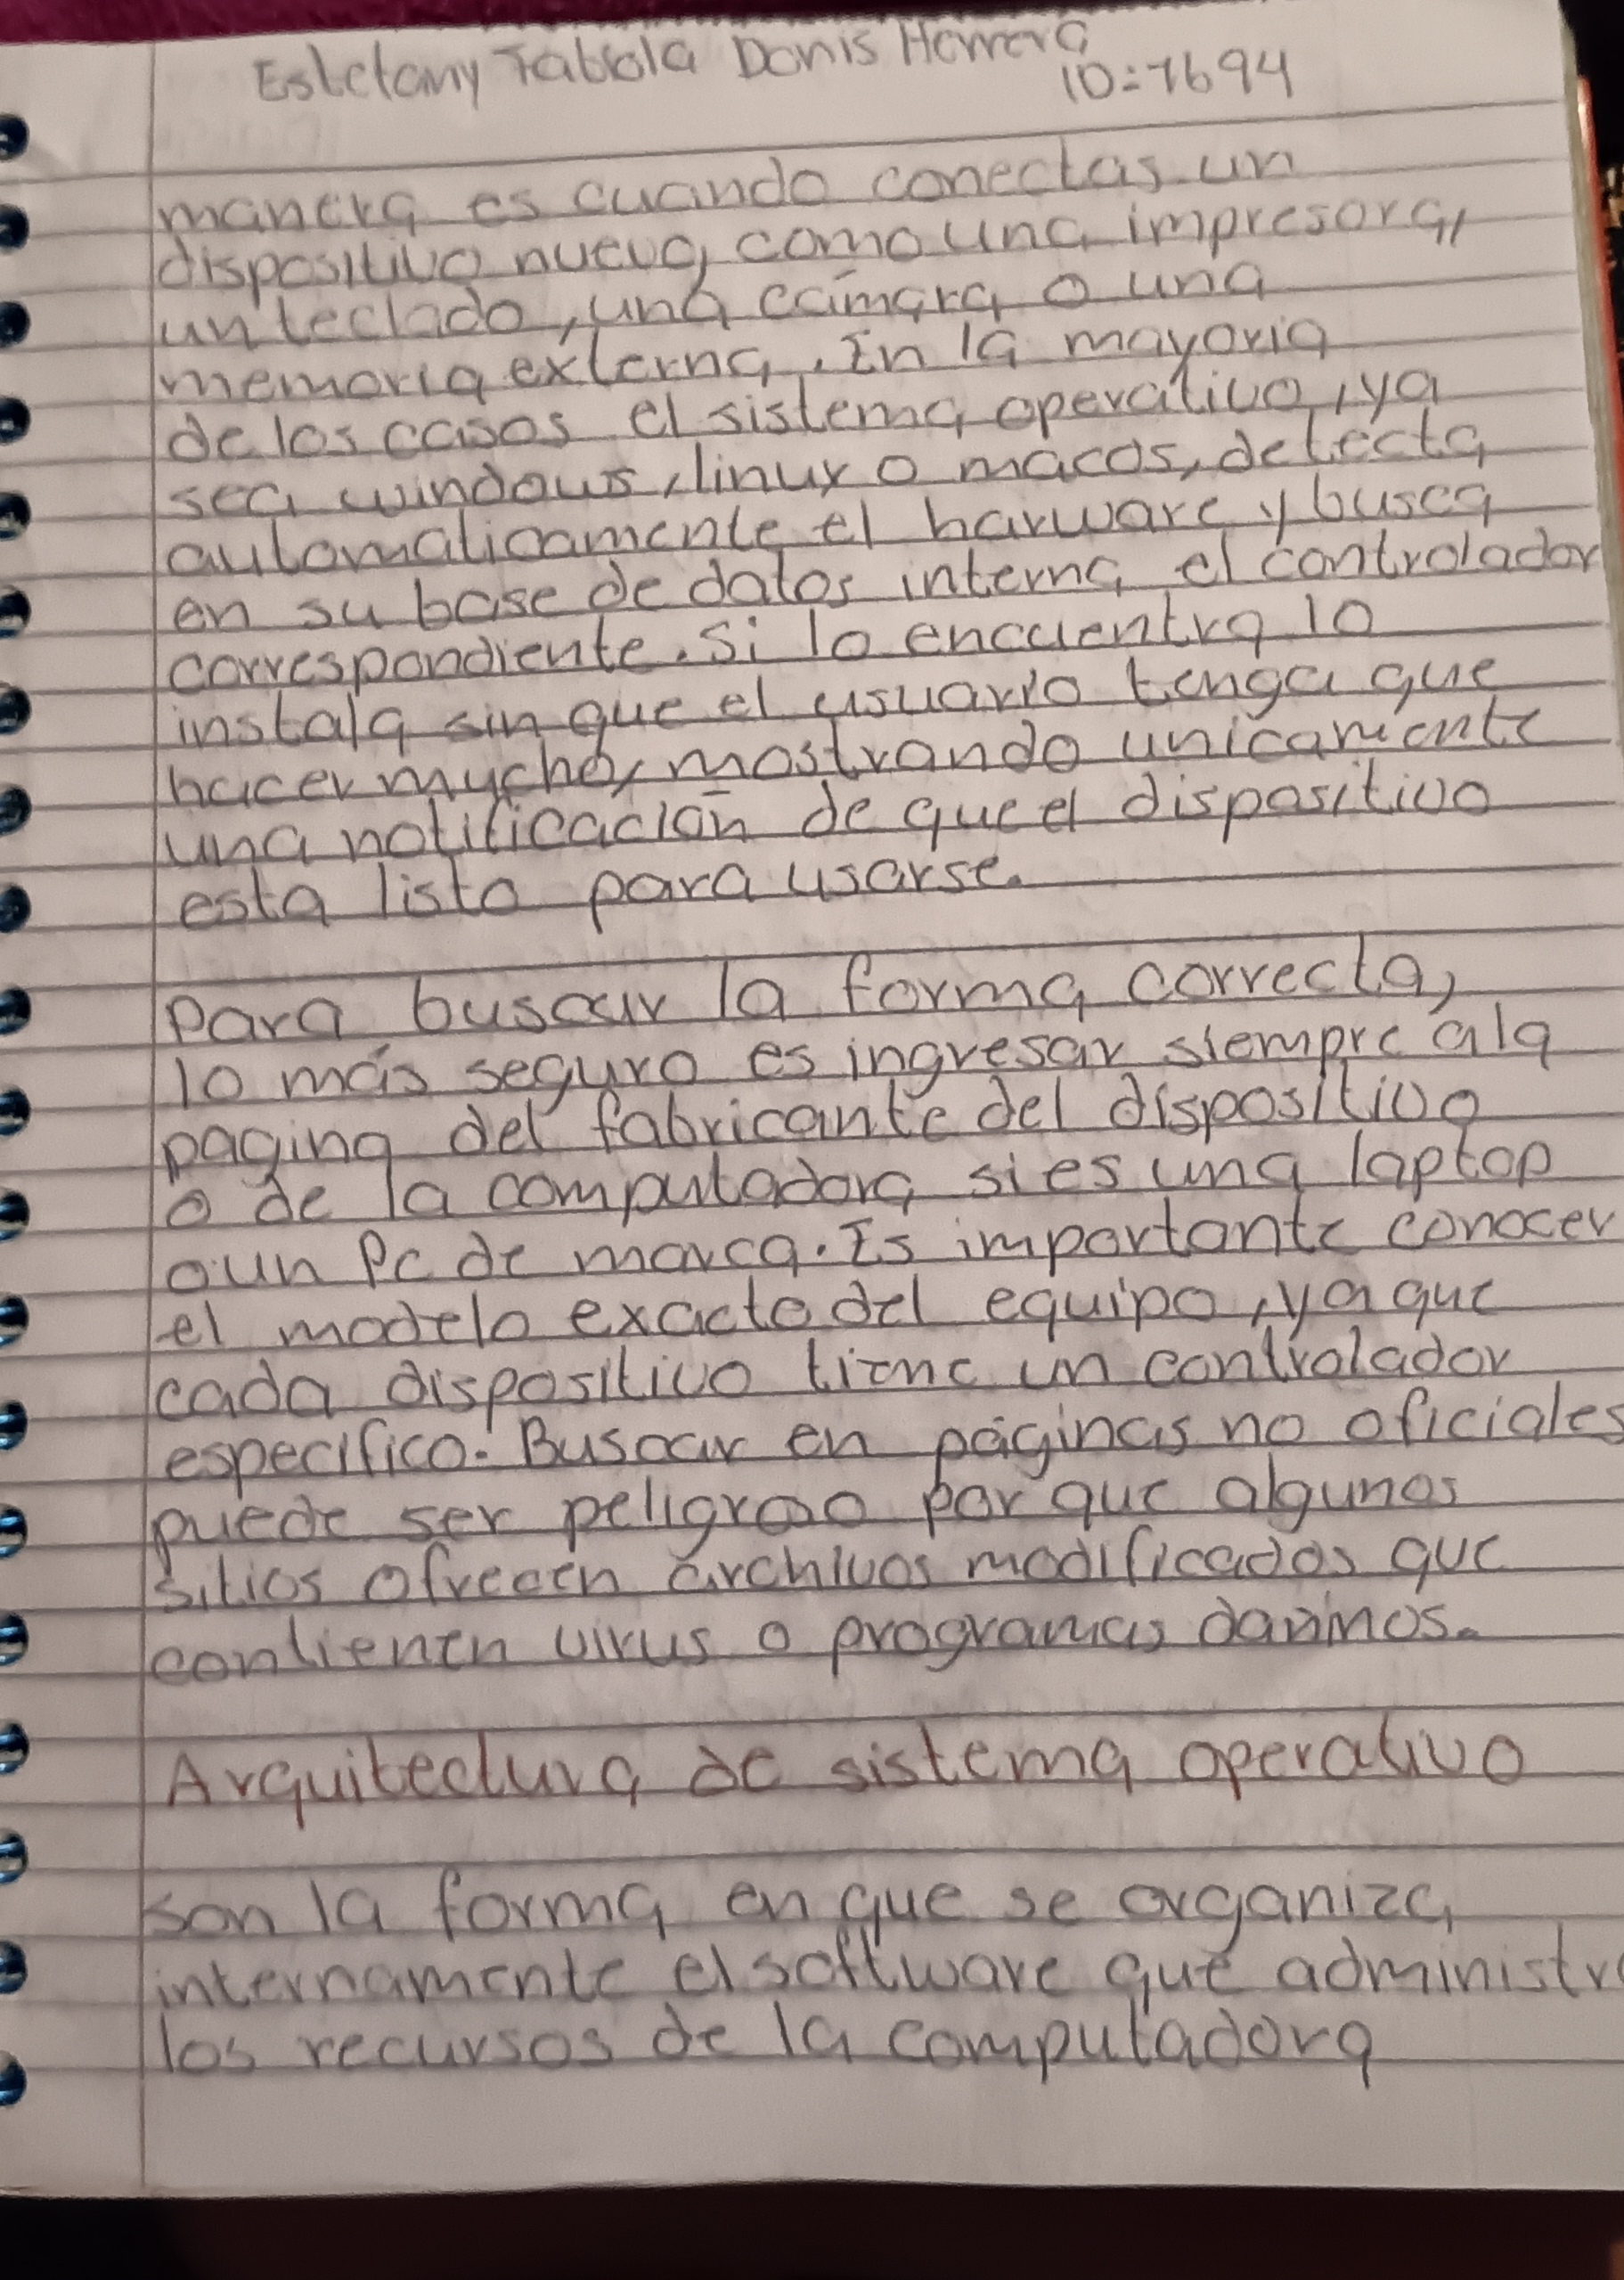 Estefany Fabiola Donis Herrera
ID:7694
manera es cuando conectas un
dispositivo nuevo, como una impresora,
un teclado, una cámara o una
memoria externa. En la mayoria
de los casos el sistema operativo, ya
sea windows, linux o macos, detecta
automaticamente el harware y busca
en su base de datos interna el controlador
correspondiente. Si lo encuentra lo
instala sin que el usuario tenga que
hacer mucho, mostrando unicamente
una notificación de que el dispositivo
esta listo para usarse.
Para buscar la forma correcta,
lo más seguro es ingresar siempre a la
pagina del fabricante del dispositivo
o de la computadora si es una laptop
o un Pc de marca. Es importante conocer
el modelo exacto del equipo, ya que
cada dispositivo tiene un controlador
especifico. Buscar en páginas no oficiales
puede ser peligroso por que algunos
sitios ofrecen archivos modificados que
contienen virus o programas daninos.
Arquitectura de sistema operativo
son la forma en que se organiza
internamente el software que administra
los recursos de la computadora